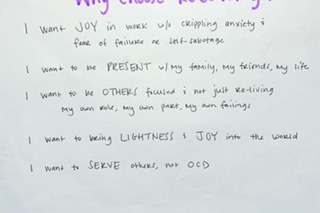 Why choose
I want JOY in work w/o crippling anxiety &
fear of failure or self-sabotage
I want to be PRESENT w/ my family, my friends, my life
I want to be OTHERS focused & not just re-living
my own role, my own part, my own failings
I want to bring LIGHTNESS & JOY into the world
I want to SERVE others, not OCD